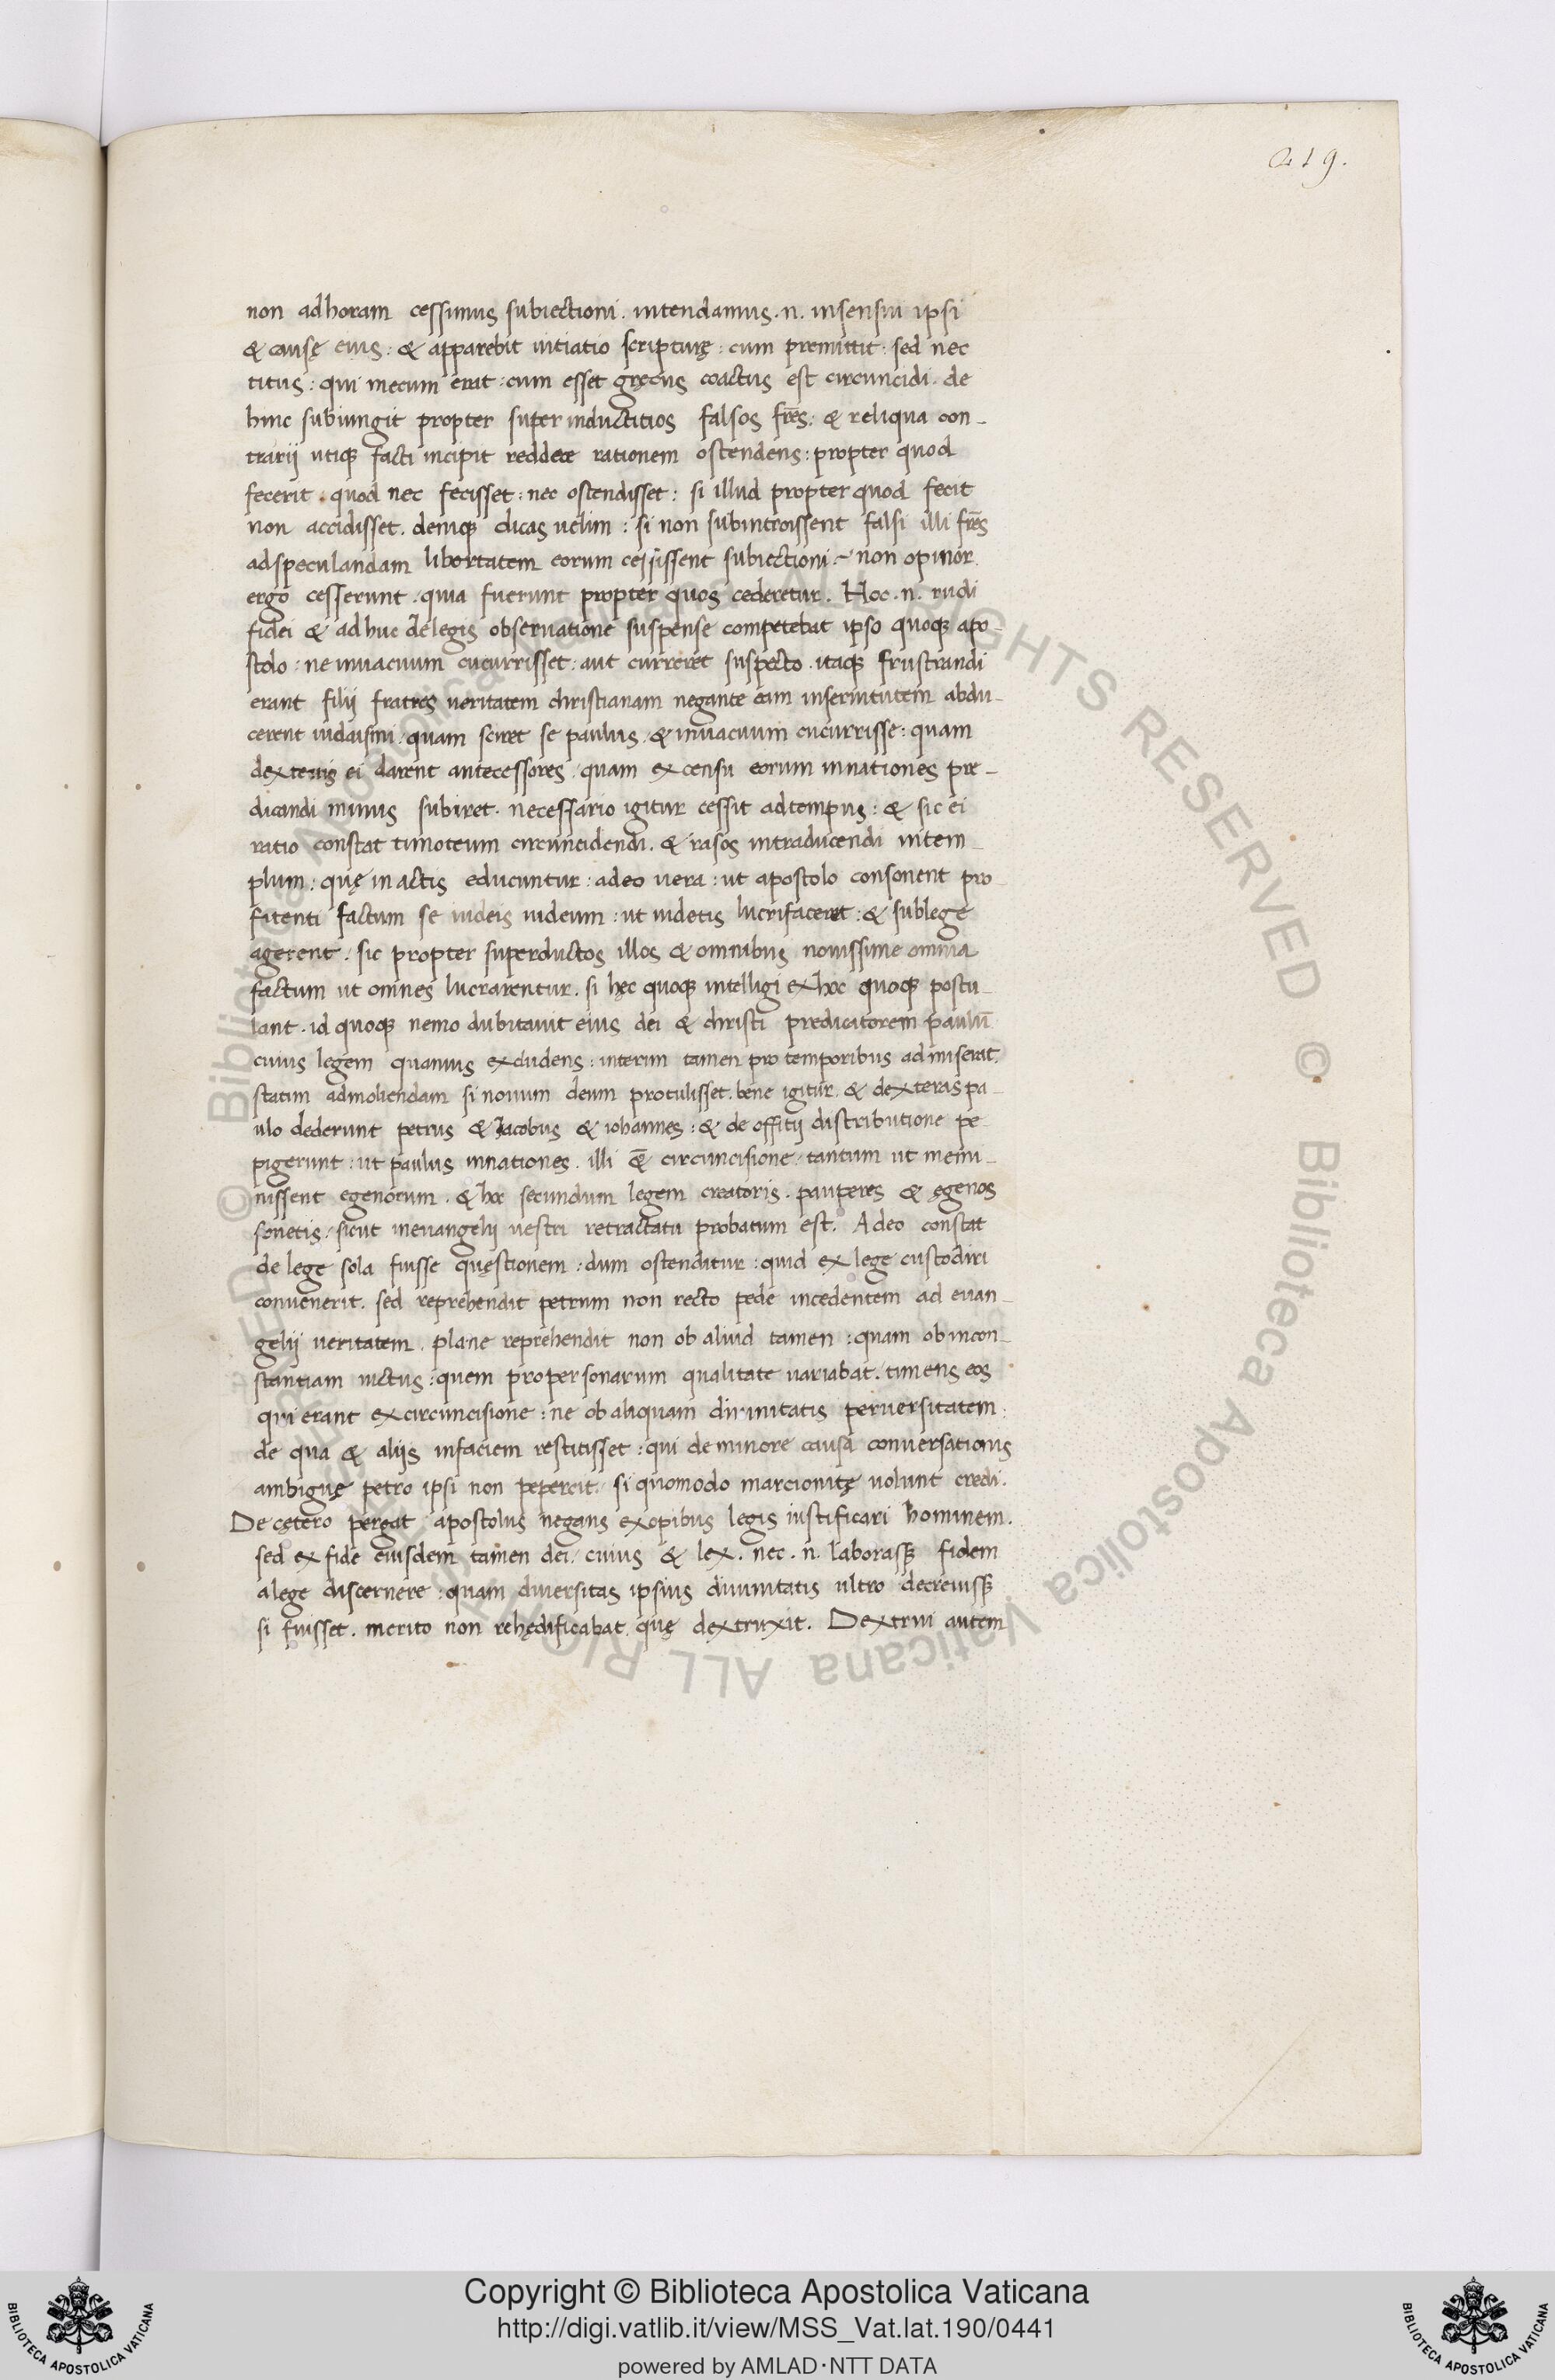 219.
non ad horam cessimus subiectioni. intendamus .n. in sensui ipsi
& causę eius: & apparebit uitiatio scripturę: cum premittit: sed nec
titus: qui mecum erat: cum esset gręcus coactus est circuncidi. de
hinc subiungit propter super inductitios falsos frēs: & reliqua con-
trarij utiq; facti incipit reddere rationem ostendens: propter quod
fecerit. quod nec fecisset: nec ostendisset: si illud propter quod fecit
non accidisset. deniq; dicas uelim: si non subintroissent falsi illi frēs
ad speculandam libertatem eorum cessissent subiectioni. non opinor.
ergo cesserunt. quia fuerunt propter quos cederetur. Hoc .n. rudi
fidei & ad huc de legis obseruatione suspense competebat ipso quoq; apo-
stolo: ne in uacuum cucurrisset: aut curreret suspecto. itaq; frustrandi
erant filij fratres ueritatem christianam negante eam in seruitutem abdu-
cerent iudaismi. quam sciret se paulus. & in uacuum cucurrisse: quam
dexteris ei darent antecessores. quam ex censu eorum in nationes pre-
dicandi minus subiret. necessario igitur cessit ad tempus: & sic ei
ratio constat timoteum circuncidendi. & rasos intraducendi in tem-
plum: quę in actis educuntur: adeo uera: ut apostolo consonent pro-
fitenti factum se iudeis iudeum: ut iudetis lucrifaceret: & sub lege
agerent. sic propter superductos illos & omnibus nouissime omnia
factum ut omnes lucrarentur. si hęc quoq; intelligi ex hoc quoq; postu-
lant. id quoq; nemo dubitauit eius dei & christi predicatorem paulū
cuius legem quamuis excludens: interim tamen pro temporibus admiserat.
statim admoliendam si nouum deum protulisset. bene igitur. & dexteras pa-
ulo dederunt petrus & Jacobus & iohannes: & de offitij distributione pe-
pigerunt: ut paulus in nationes. illi & circuncisione. tantum ut memi-
nissent egenorum. & hoc secundum legem creatoris. pauperes & ęgenos
fonetis. sicut in euangelij uestri retractatu probatum est. Adeo constat
de lege sola fuisse quęstionem: dum ostenditur: quid ex lege custodiri
conuenerit. sed reprehendit petrum non recto pede incedentem ad euan-
gelij ueritatem. plane reprehendit non ob aliud tamen: quam ob incon-
stantiam uictus: quem pro personarum qualitate uariabat. timens eos
qui erant ex circuncisione: ne ob aliquam diuinitatis peruersitatem:
de qua & alijs in faciem restitisset: qui de minore causa conuersationis
ambiguę petro ipsi non pepercit. si quomodo marcionitę uolunt credi.
De cętero pergat apostolus negans ex opibus legis iustificari hominem.
sed ex fide eiusdem tamen dei. cuius & lex. nec .n. laborass; fidem
a lege discernere: quam diuersitas ipsius diuinitatis ultro decreuiss;
si fuisset. merito non rehędificabat. quę dextruxit. Dextrui autem
© Biblioteca Apostolica Vaticana ALL RIGHTS RESERVED
Copyright © Biblioteca Apostolica Vaticana
http://digi.vatlib.it/view/MSS_Vat.lat.190/0441
powered by AMLAD·NTT DATA
BIBLIOTECA APOSTOLICA VATICANA
BIBLIOTECA APOSTOLICA VATICANA